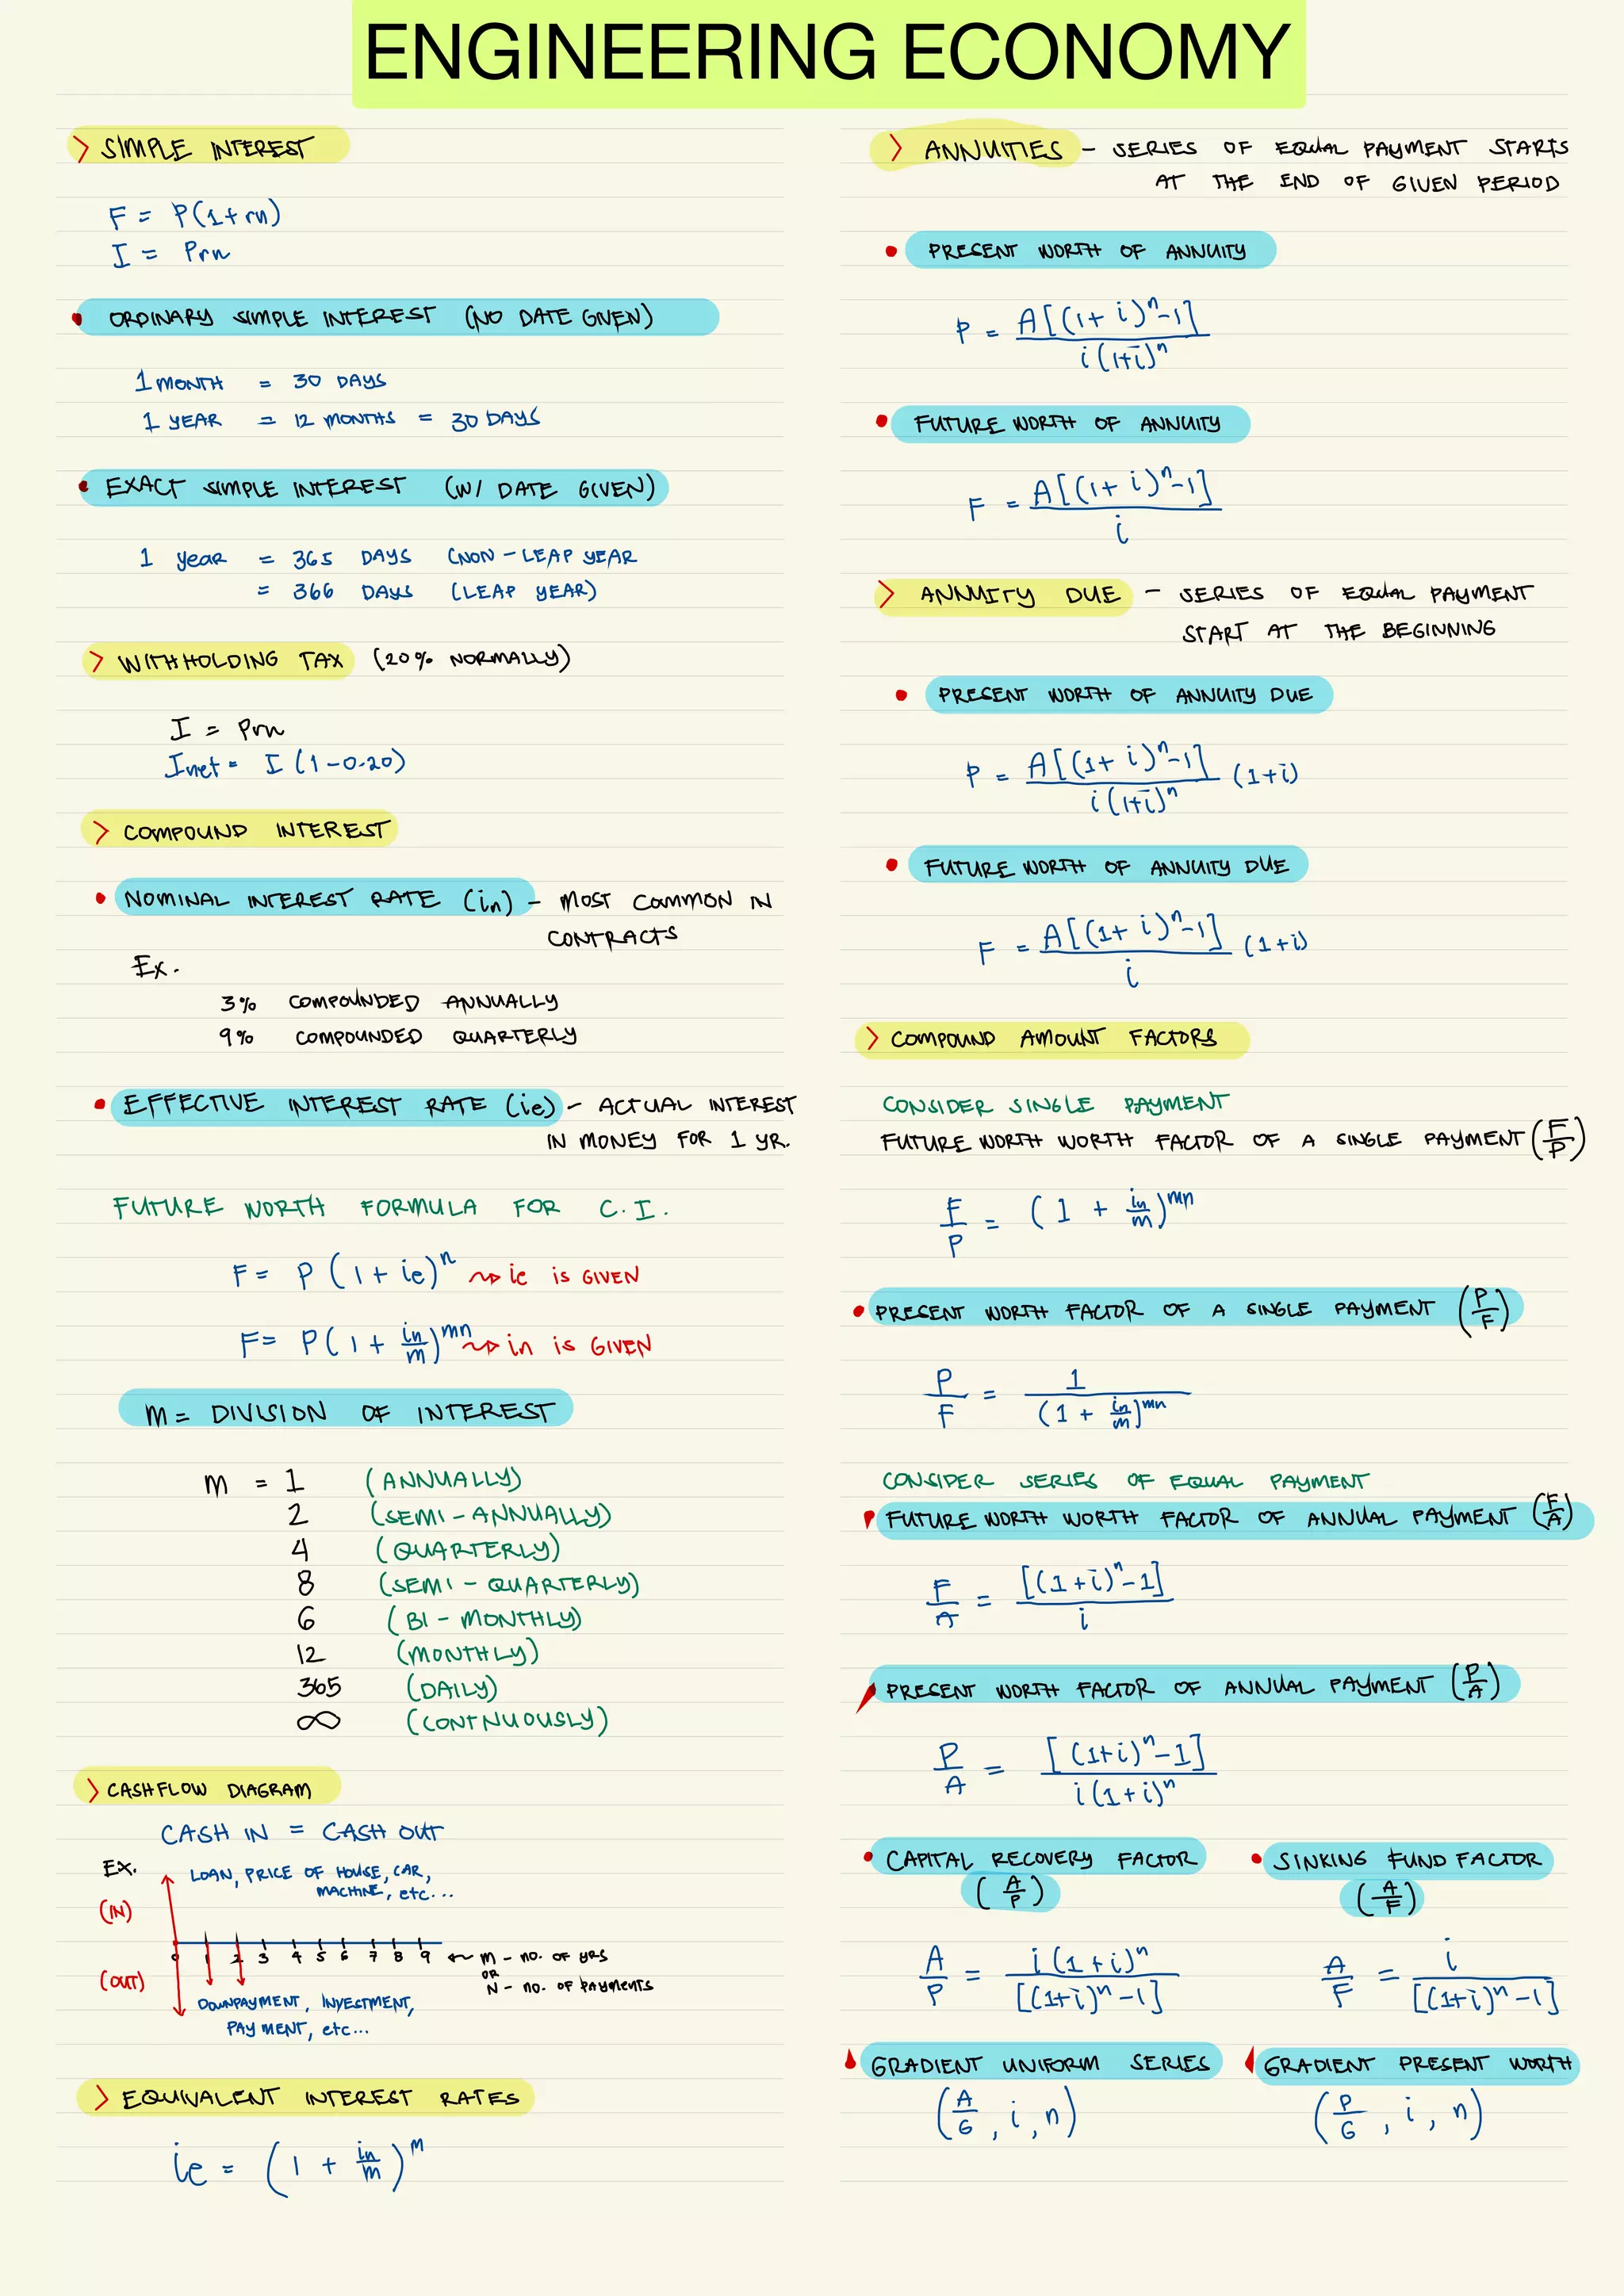 ENGINEERING ECONOMY
> SIMPLE INTEREST
F = P(1+rn)
I = Prn
• ORDINARY SIMPLE INTEREST (NO DATE GIVEN)
1 MONTH = 30 DAYS
1 YEAR = 12 MONTHS = 30 DAYS
• EXACT SIMPLE INTEREST (W/ DATE GIVEN)
1 year = 365 DAYS (NON-LEAP YEAR
= 366 DAYS (LEAP YEAR)
> WITHHOLDING TAX (20% NORMALLY)
I = Prn
Inet = I (1-0.20)
> COMPOUND INTEREST
• NOMINAL INTEREST RATE (in) - MOST COMMON IN
CONTRACTS
Ex.
3% COMPOUNDED ANNUALLY
9% COMPOUNDED QUARTERLY
• EFFECTIVE INTEREST RATE (ie) - ACTUAL INTEREST
IN MONEY FOR 1 YR.
FUTURE WORTH FORMULA FOR C.I.
F = P (1 + ie)^n ⇝ ie is GIVEN
F = P (1 + in/m)^mn ⇝ in is GIVEN
M = DIVISION OF INTEREST
M = 1 (ANNUALLY)
2 (SEMI-ANNUALLY)
4 (QUARTERLY)
8 (SEMI-QUARTERLY)
6 (BI-MONTHLY)
12 (MONTHLY)
365 (DAILY)
∞ (CONTNUOUSLY)
> CASHFLOW DIAGRAM
CASH IN = CASH OUT
EX.
LOAN, PRICE OF HOUSE, CAR,
MACHINE, etc...
(IN)
0 1 2 3 4 5 6 7 8 9 ← M - no. OF YRS
OR
(OUT)
N - no. OF PAYMENTS
DOWNPAYMENT, INVESTMENT,
PAYMENT, etc...
> EQUIVALENT INTEREST RATES
ie = (1 + in/m)^m
> ANNUITIES - SERIES OF EQUAL PAYMENT STARTS
AT THE END OF GIVEN PERIOD
• PRESENT WORTH OF ANNUITY
P = A[(1+i)^n-1] / i(1+i)^n
• FUTURE WORTH OF ANNUITY
F = A[(1+i)^n-1] / i
> ANNUITY DUE - SERIES OF EQUAL PAYMENT
START AT THE BEGINNING
• PRESENT WORTH OF ANNUITY DUE
P = A[(1+i)^n-1] / i(1+i)^n (1+i)
• FUTURE WORTH OF ANNUITY DUE
F = A[(1+i)^n-1] / i (1+i)
> COMPOUND AMOUNT FACTORS
CONSIDER SINGLE PAYMENT
FUTURE WORTH WORTH FACTOR OF A SINGLE PAYMENT (F/P)
F/P = (1 + in/m)^mn
• PRESENT WORTH FACTOR OF A SINGLE PAYMENT (P/F)
P/F = 1 / (1 + in/m)^mn
CONSIDER SERIES OF EQUAL PAYMENT
• FUTURE WORTH WORTH FACTOR OF ANNUAL PAYMENT (F/A)
F/A = [(1+i)^n-1] / i
• PRESENT WORTH FACTOR OF ANNUAL PAYMENT (P/A)
P/A = [(1+i)^n-1] / i(1+i)^n
• CAPITAL RECOVERY FACTOR
(A/P)
A/P = i(1+i)^n / [(1+i)^n-1]
• SINKING FUND FACTOR
(A/F)
A/F = i / [(1+i)^n-1]
• GRADIENT UNIFORM SERIES
(A/G, i, n)
• GRADIENT PRESENT WORTH
(P/G, i, n)